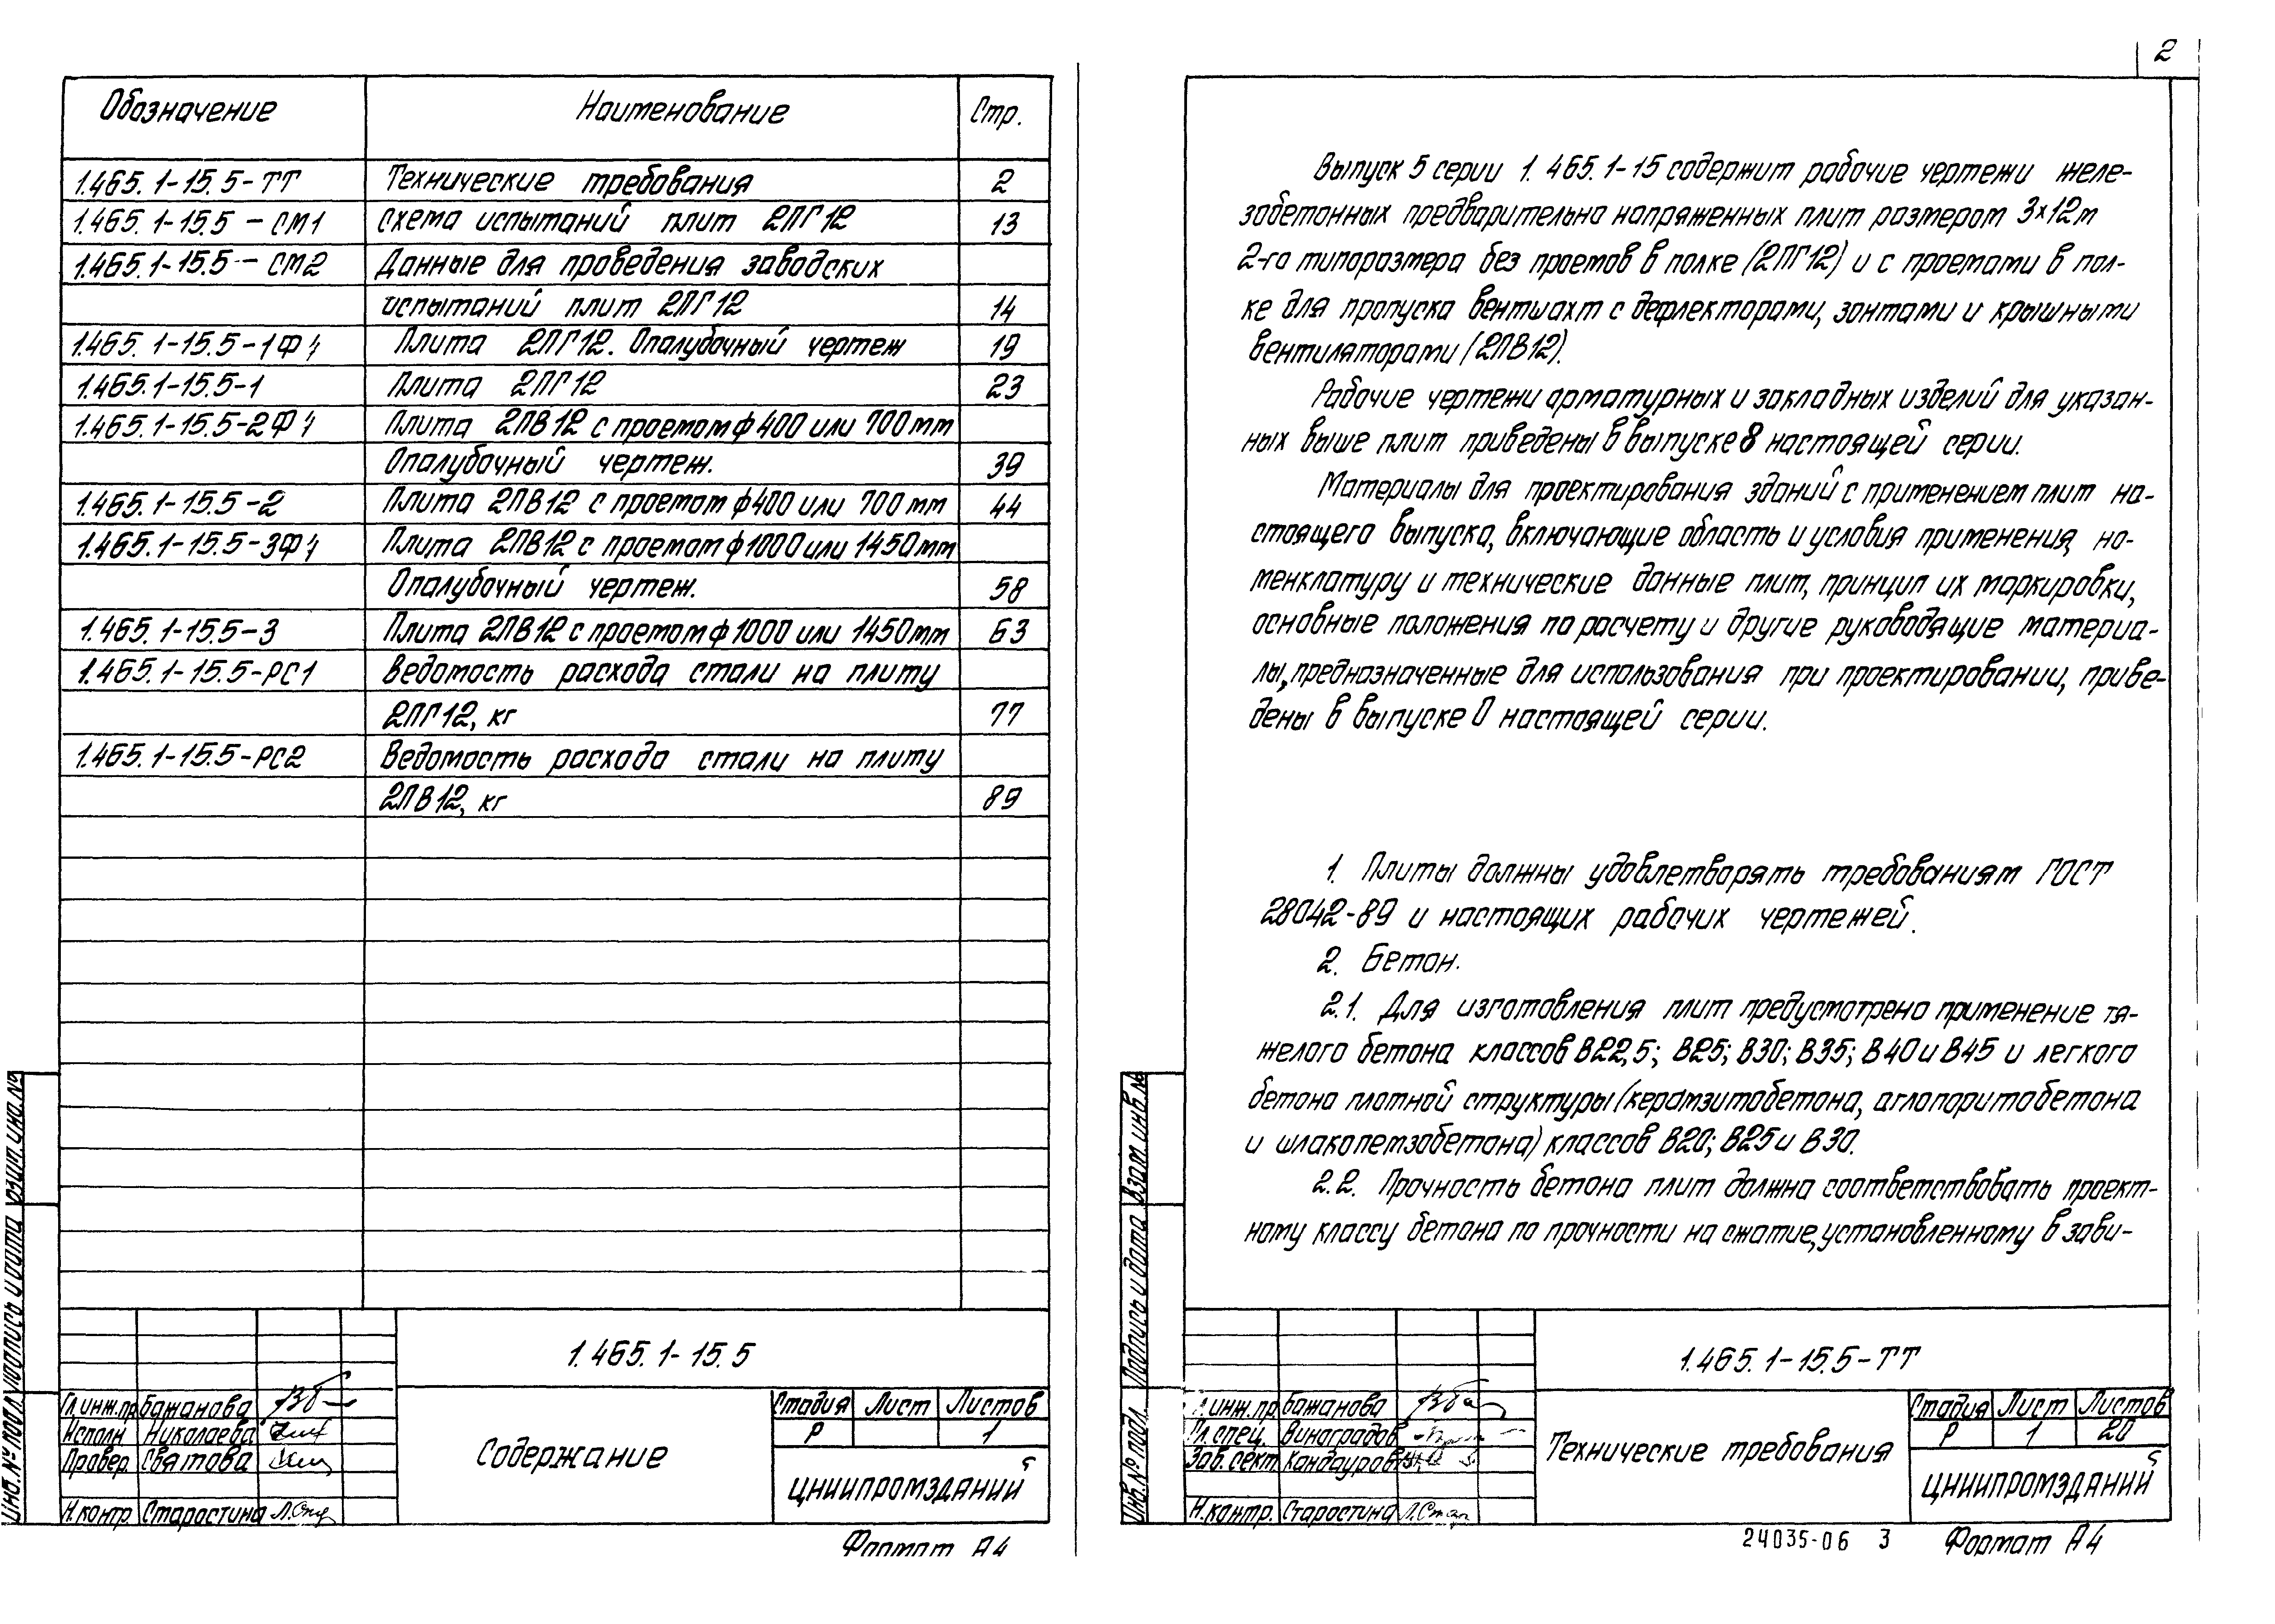 Обозначение Наименование Стр.
1.465.1-15.5-ТТ Технические требования 2
1.465.1-15.5-СМ1 Схема испытаний плит 2ПГ12 13
1.465.1-15.5-СМ2 Данные для проведения заводских
испытаний плит 2ПГ12 14
1.465.1-15.5-1ФЧ Плита 2ПГ12. Опалубочный чертеж 19
1.465.1-15.5-1 Плита 2ПГ12 23
1.465.1-15.5-2ФЧ Плита 2ПВ12 с проемом ф400 или 700мм
Опалубочный чертеж. 39
1.465.1-15.5-2 Плита 2ПВ12 с проемом ф400 или 700мм 44
1.465.1-15.5-3ФЧ Плита 2ПВ12 с проемом ф1000 или 1450мм
Опалубочный чертеж. 58
1.465.1-15.5-3 Плита 2ПВ12 с проемом ф1000 или 1450мм 63
1.465.1-15.5-РС1 Ведомость расхода стали на плиту
2ПГ12, кг 77
1.465.1-15.5-РС2 Ведомость расхода стали на плиту
2ПВ12, кг 89
Инв.№ подл. Подпись и дата Взам. инв.№
1.465.1-15.5
Гл.инж.пр. Бажанова
Исполн. Николаева
Провер. Святова
Н.контр. Старостина
Содержание
Стадия Лист Листов
Р 1
ЦНИИПРОМЗДАНИЙ
Формат А4
2
Выпуск 5 серии 1.465.1-15 содержит рабочие чертежи желе-
зобетонных предварительно напряженных плит размером 3х12м
2-го типоразмера без проемов в полке (2ПГ12) и с проемами в пол-
ке для пропуска вентшахт с дефлекторами, зонтами и крышными
вентиляторами (2ПВ12).
Рабочие чертежи арматурных и закладных изделий для указан-
ных выше плит приведены в выпуске 8 настоящей серии.
Материалы для проектирования зданий с применением плит на-
стоящего выпуска, включающие область и условия применения, но-
менклатуру и технические данные плит, принцип их маркировки,
основные положения по расчету и другие руководящие материа-
лы, предназначенные для использования при проектировании, приве-
дены в выпуске 0 настоящей серии.
1. Плиты должны удовлетворять требованиям ГОСТ
28042-89 и настоящих рабочих чертежей.
2. Бетон.
2.1. Для изготовления плит предусмотрено применение тя-
желого бетона классов В22,5; В25; В30; В35; В40 и В45 и легкого
бетона плотной структуры (керамзитобетона, аглопоритобетона
и шлакопемзобетона) классов В20; В25 и В30.
2.2. Прочность бетона плит должна соответствовать проект-
ному классу бетона по прочности на сжатие, установленному в зави-
Инв.№ подл. Подпись и дата Взам. инв.№
1.465.1-15.5-ТТ
Гл.инж.пр. Бажанова
Гл.спец. Виноградов
Зав.сект. Кандауров
Н.контр. Старостина
Технические требования
Стадия Лист Листов
Р 1 20
ЦНИИПРОМЗДАНИЙ
24035-06 3 Формат А4